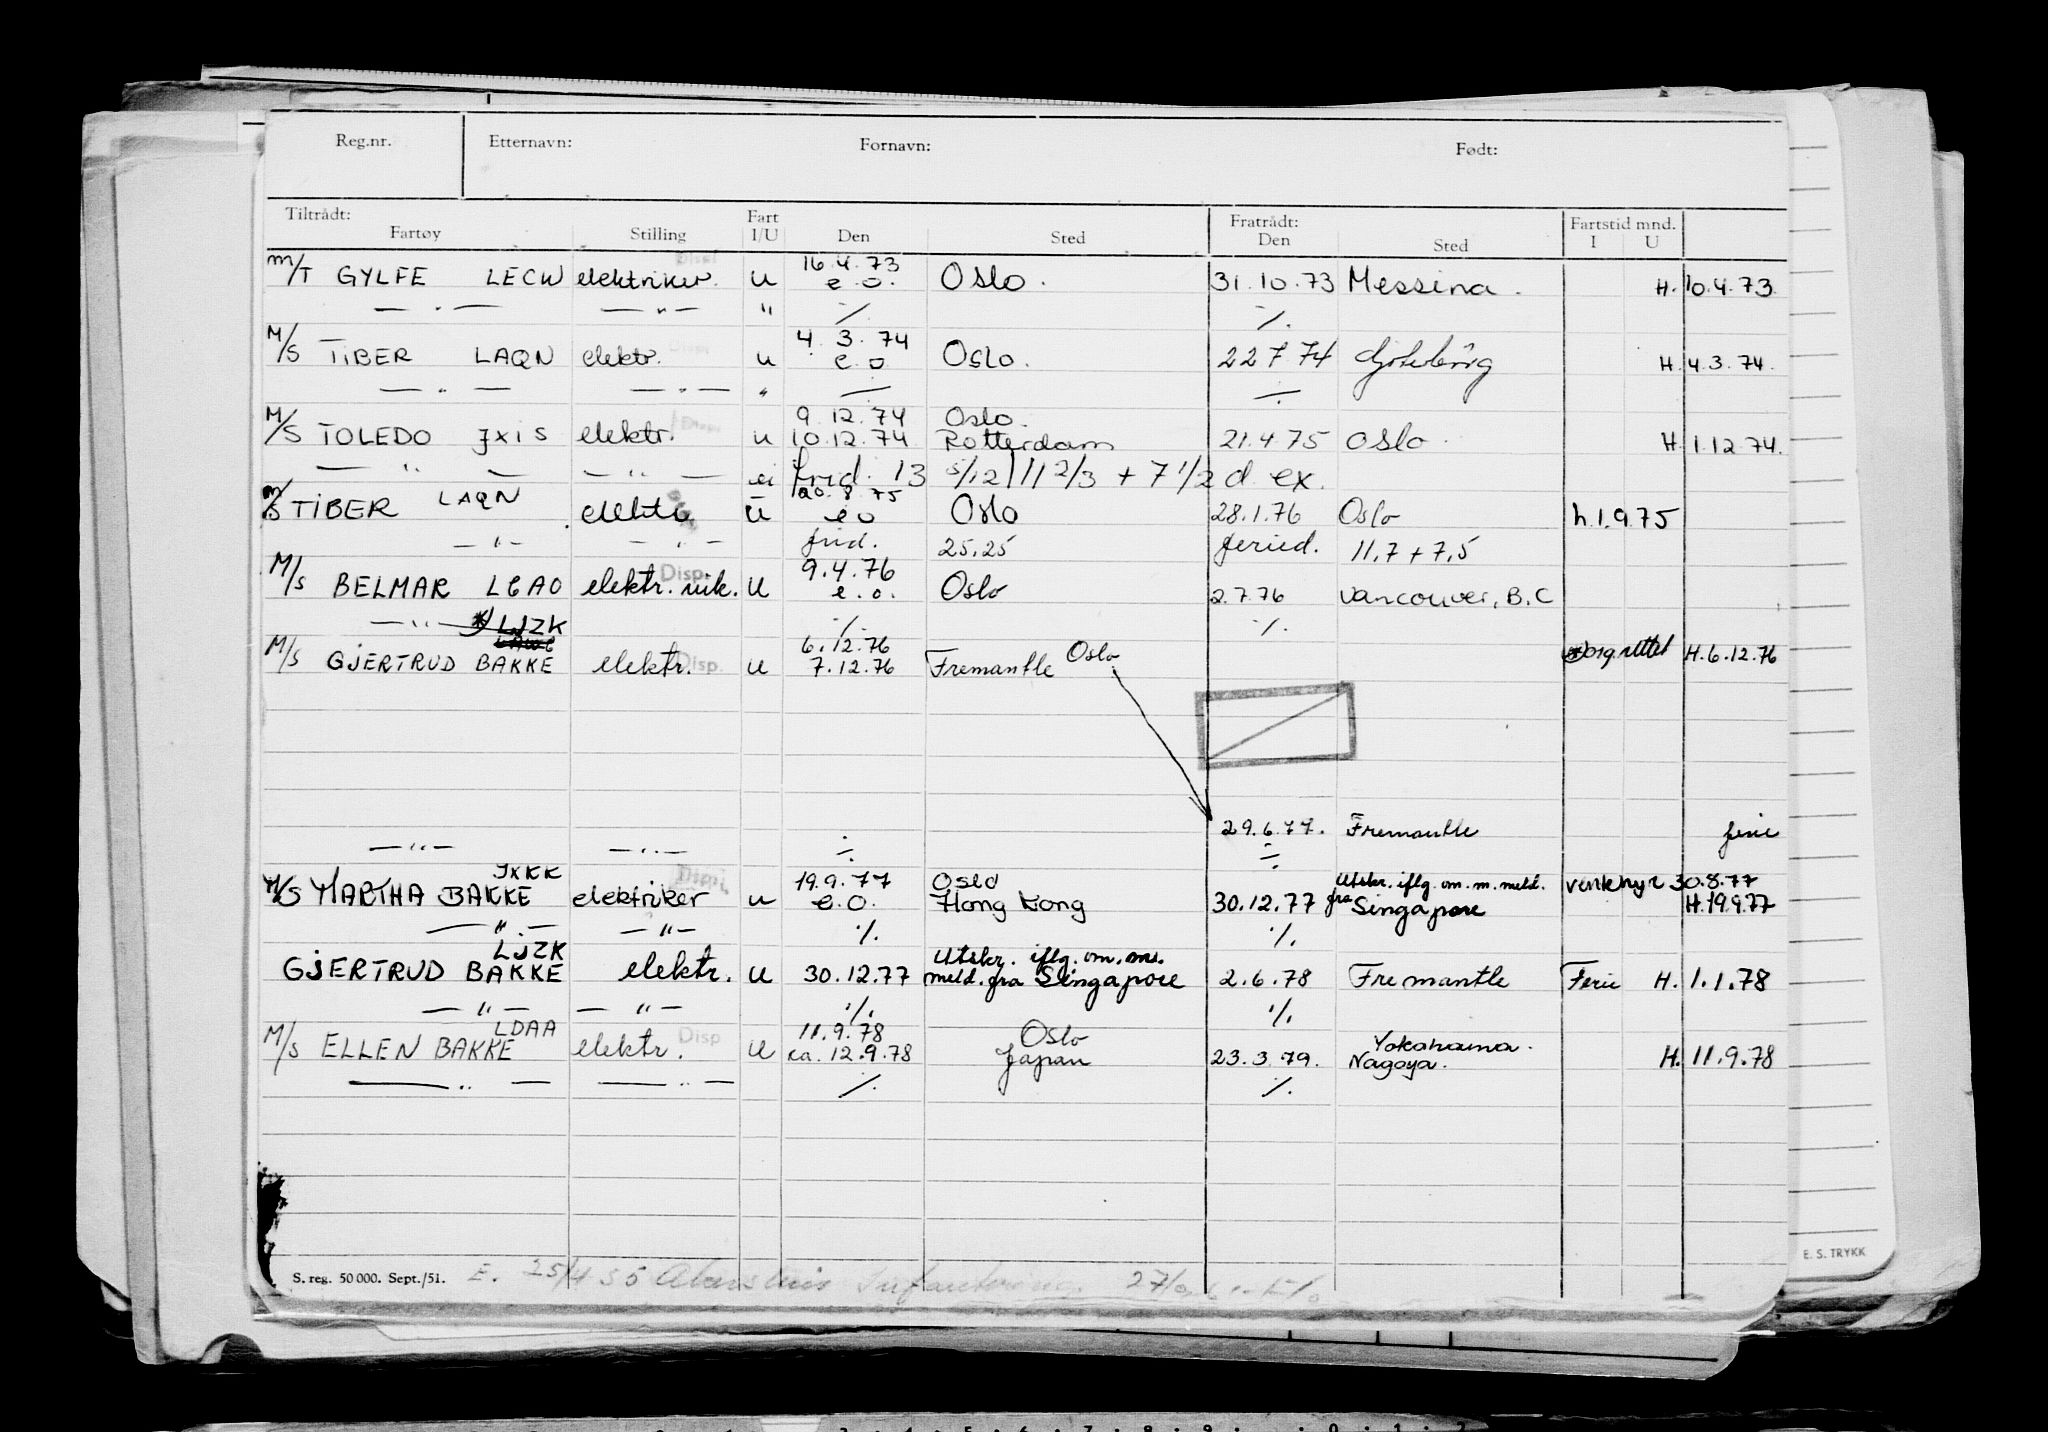 Reg.nr. Etternavn: Fornavn: Født:
Tiltrådt: Fart Fratrådt: Fartstid mnd.
Fartøy Stilling I/U Den Sted Den Sted I U
M/T GYLFE LECW elektriker. U 16.4.73 e.o. Oslo. 31.10.73 Messina. H. 10.4.73
— " — — " — " ·/. ·/.
M/S TIBER LAQN elektr. U 4.3.74 e.o Oslo. 22 7 74 Göteborg H. 4.3.74.
— " — — " — " — ·/.
M/S TOLEDO JXIS elektr. U 9.12.74 Oslo.
10.12.74 Rotterdam 21.4.75 Oslo. H. 1.12.74.
— " — — " — frid. 13 5/12 11 2/3 + 7 1/2 d ex.
M/S TIBER LAQN elektr U 20.8.75 e o Oslo 28.1.76 Oslo h.1.9.75
— " — — " — frid. 25,25 feried. 11,7 + 7,5
M/S BELMAR LGAO elektr. vik. Disp. U 9.4.76 e.o. Oslo 2.7.76 Vancouver, B.C
— " — *) LJZK ·/. ·/.
M/S GJERTRUD BAKKE elektr. Disp. U 6.12.76 7.12.76 Fremantle Oslo H. 6.12.76
29.6.77. Fremantle ferie
— " — — " — ·/. ·/.
M/S MARTHA BAKKE JXKK elektriker Disp. U 19.9.77 e.o. Oslo Hong Kong 30.12.77 Utskr. iflg. om. m. meld. fra Singapore verkhyr 30.8.77 H. 19.9.77
— " — — " — ·/. ·/.
GJERTRUD BAKKE LJZK elektr. U 30.12.77 Utskr. iflg. om. ms. meld. fra Singapore 2.6.78 Fremantle Ferie H. 1.1.78
— " — — " — ·/. ·/.
M/S ELLEN BAKKE LDAA elektr. Disp U 11.9.78 Oslo
ca. 12.9.78 Japan 23.3.79. Yokohama. Nagoya. H. 11.9.78
— " — — " — ·/. ·/.
S. reg. 50 000. Sept./51. E. 25/4 55
E. S. TRYKK